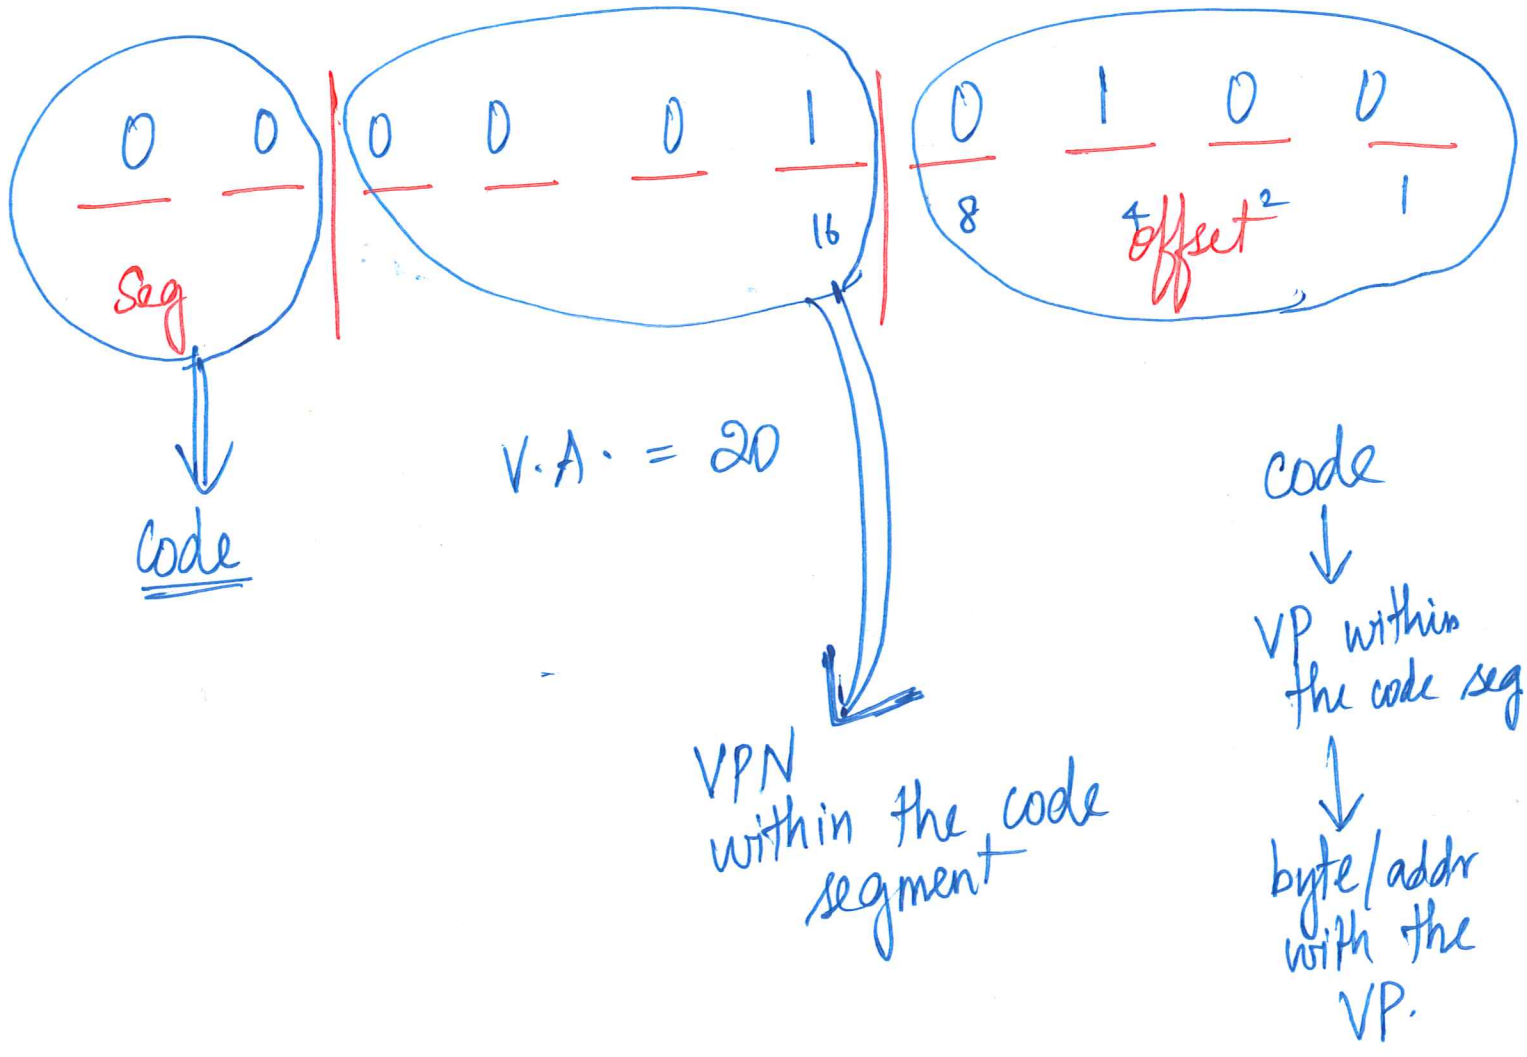 0 0 | 0 0 0 1 | 0 1 0 0
16 8 4 2 1
Seg
offset
V.A. = 20
code
code
VPN
within the code
segment
VP within
the code seg
byte/addr
with the
VP.